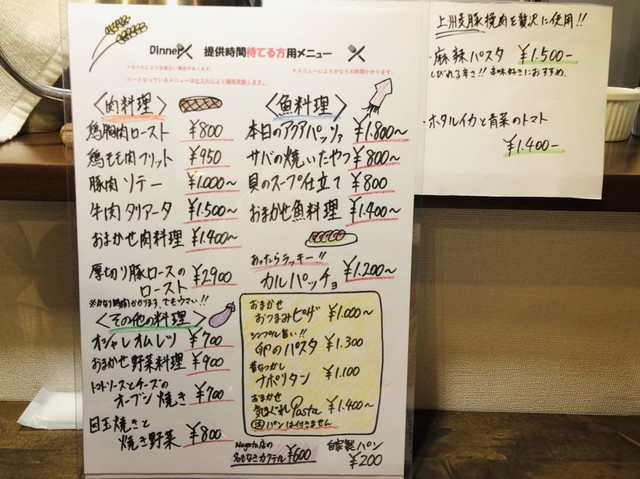 Dinner 提供時間待てる方用メニュー
<肉料理>
鶏胸肉ロースト ¥800
鶏もも肉フリット ¥950
豚肉ソテー ¥1.000~
牛肉タリアータ ¥1.500~
おまかせ肉料理 ¥1.400~
厚切り豚ロースの
ロースト ¥2900
※かなり時間かかります、でもウマい!!
<その他の料理>
オシャレオムレツ ¥700
おまかせ野菜料理 ¥900
トマトソースとチーズの
オーブン焼き ¥700
目玉焼きと
焼き野菜 ¥800
<魚料理>
本日のアクアパッツァ ¥1.800~
サバの焼いたやつ ¥800~
貝のスープ仕立て ¥800
おまかせ魚料理 ¥1.400~
あったらラッキー!!
カルパッチョ ¥1.200~
おまかせ
おつまみピザ ¥1.000~
シンプル旨い!!
卵のパスタ ¥1.300
昔なつかし
ナポリタン ¥1.100
おまかせ
気まぐれPasta ¥1.400~
パンは付きません
Nagata店の
名もなきカクテル ¥600
自家製パン
¥200
上州麦豚挽肉を贅沢に使用!!
・麻辣パスタ ¥1.500-
しびれる辛さ!!辛味好きにおすすめ
・ホタルイカと青菜のトマト
¥1.400-